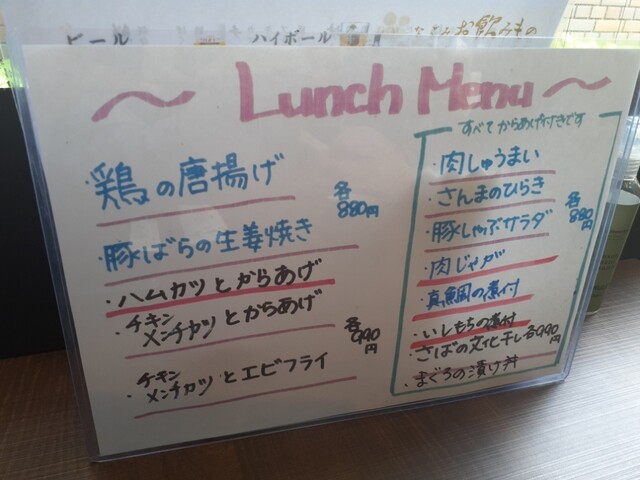 ビール
ハイボール
お飲みもの
～ Lunch Menu ～
・鶏の唐揚げ
・豚ばらの生姜焼き
各880円
・ハムカツとからあげ
・チキンメンチカツとからあげ
各990円
・チキンメンチカツとエビフライ
すべてからあげ付きです
・肉しゅうまい
・さんまのひらき
・豚しゃぶサラダ
各880円
・肉じゃが
・真鯛の煮付
・いしもちの煮付
・さばの文化干し各990円
・まぐろの漬け丼